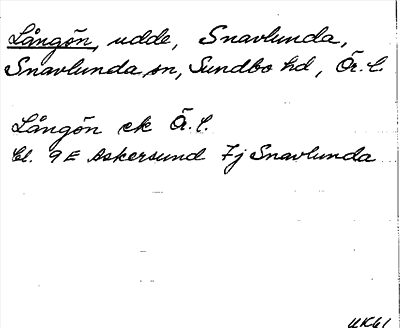 Långön, udde, Snavlunda,
Snavlunda sn, Sundbo hd, Ör. l.
Långön ek Ör. l.
Bl. 9E Askersund 7j Snavlunda